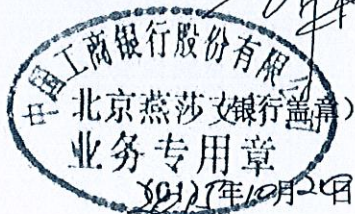 中国工商银行股份有限公司
北京燕莎支(银行盖章)
业务专用章
年10月2日